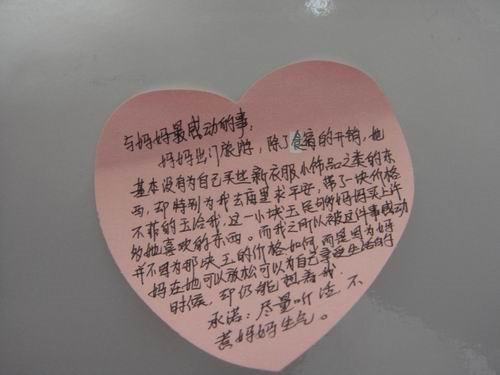 与妈妈最感动的事:
妈妈出门旅游，除了食宿的开销，她
基本没有为自己买些新衣服小饰品之类的东
西，却特别为我去庙里求平安，带了一块价格
不菲的玉给我，这一小块玉足够妈妈买上许
多她喜欢的东西。而我之所以被这件事感动
并不因为那块玉的价格如何，而是因为妈
妈在她可以放松可以为自己享受生活的
时候，却仍能想着我。
承诺：尽量听话 不
惹妈妈生气。